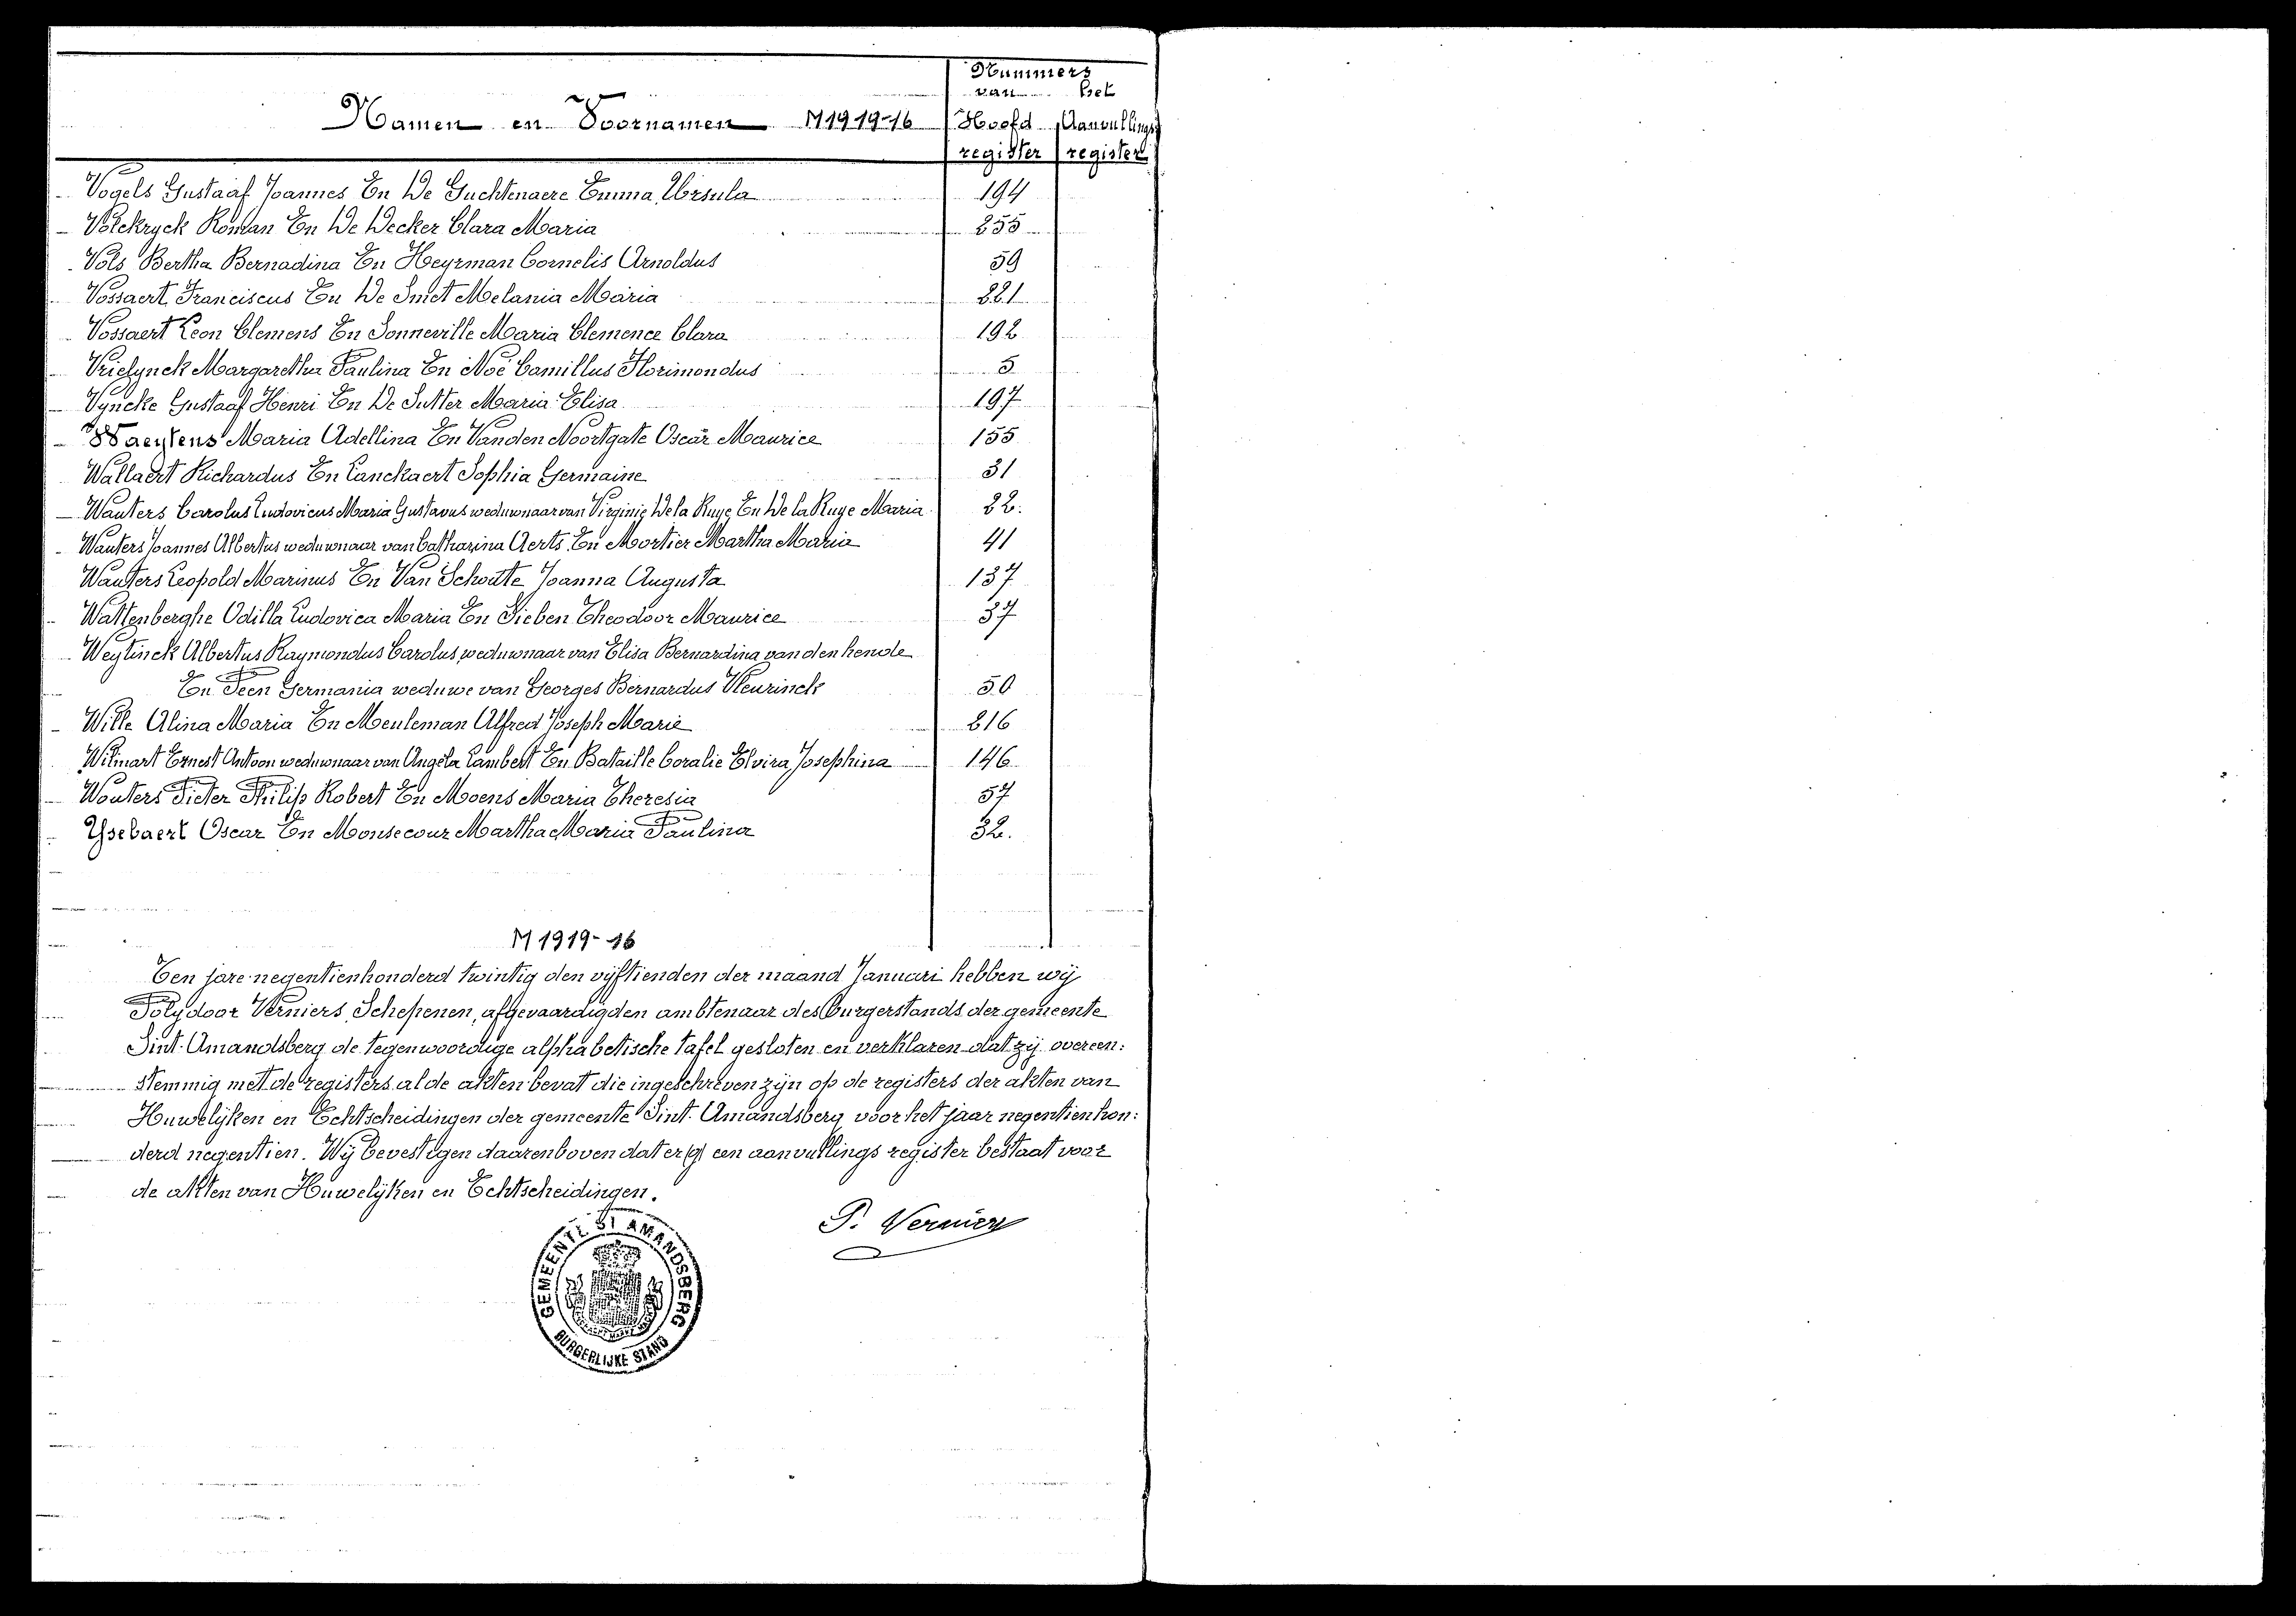 Nummers
van het
Namen en Voornamen M1919-16 Hoofd Aanvullings
register register
Vogels Gustaaf Joannes En De Guchtenaere Emma Ursula 194
Volckryck Roman En De Decker Clara Maria 255
Vols Bertha Bernadina En Heyrman Cornelis Arnoldus 59
Vossaert Franciscus En De Smet Melania Maria 221
Vossaert Leon Clemens En Sonneville Maria Clemence Clara 192
Vrielynck Margaretha Paulina En Noë Camillus Florimondus 5
Vyncke Gustaaf Henri En De Sutter Maria Elisa 197
Waeytens Maria Adellina En Vanden Noortgate Oscar Maurice 155
Wallaert Richardus En Lanckaert Sophia Germaine 31
Wauters Carolus Ludovicus Maria Gustavus weduwnaar van Virginie De la Ruye En De la Ruye Maria 22.
Wauters Joannes Albertus weduwnaar van Catharina Aerts En Mortier Martha Maria 41
Wauters Leopold Marinus En Van Schoute Joanna Augusta 137
Wattenberghe Odilla Ludovica Maria En Sieben Theodoor Maurice 37
Weytinck Albertus Raymondus Carolus, weduwnaar van Elisa Bernardina van den hende
En Peen Germania weduwe van Georges Bernardus Vleurinck 50
Wille Alina Maria En Meuleman Alfred Joseph Marie 216
Wilmart Ernest Antoon weduwnaar van Angela Lambert En Bataille Coralie Elvira Josephina 146
Wouters Pieter Philip Robert En Moens Maria Theresia 57
Ysebaert Oscar En Monsecour Martha Maria Paulina 32.
M 1919-16
Ten jare negentienhonderd twintig den vijftienden der maand Januari hebben wij
Polydoor Verniers, Schepenen, afgevaardigden ambtenaar des Burgerstands der gemeente
Sint-Amandsberg de tegenwoordige alphabetische tafel gesloten en verklaren dat zij overeen:
stemmig met de registers al de akten bevat die ingeschreven zijn op de registers der akten van
Huwelijken en Echtscheidingen der gemeente Sint-Amandsberg voor het jaar negentienhon:
derd negentien. Wij bevestigen daarenboven dat er (g) een aanvullings register bestaat voor
de akten van Huwelijken en Echtscheidingen.
P. Verniers
GEMEENTE ST AMANDSBERG
BURGERLIJKE STAND